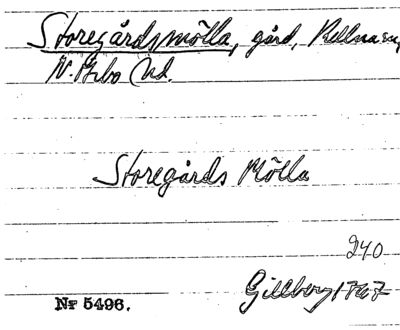 Storegårdsmölla, gård,
N. Åsbo hd.
Storegårds Mölla
240
Gillberg 1767
Nr 5496.